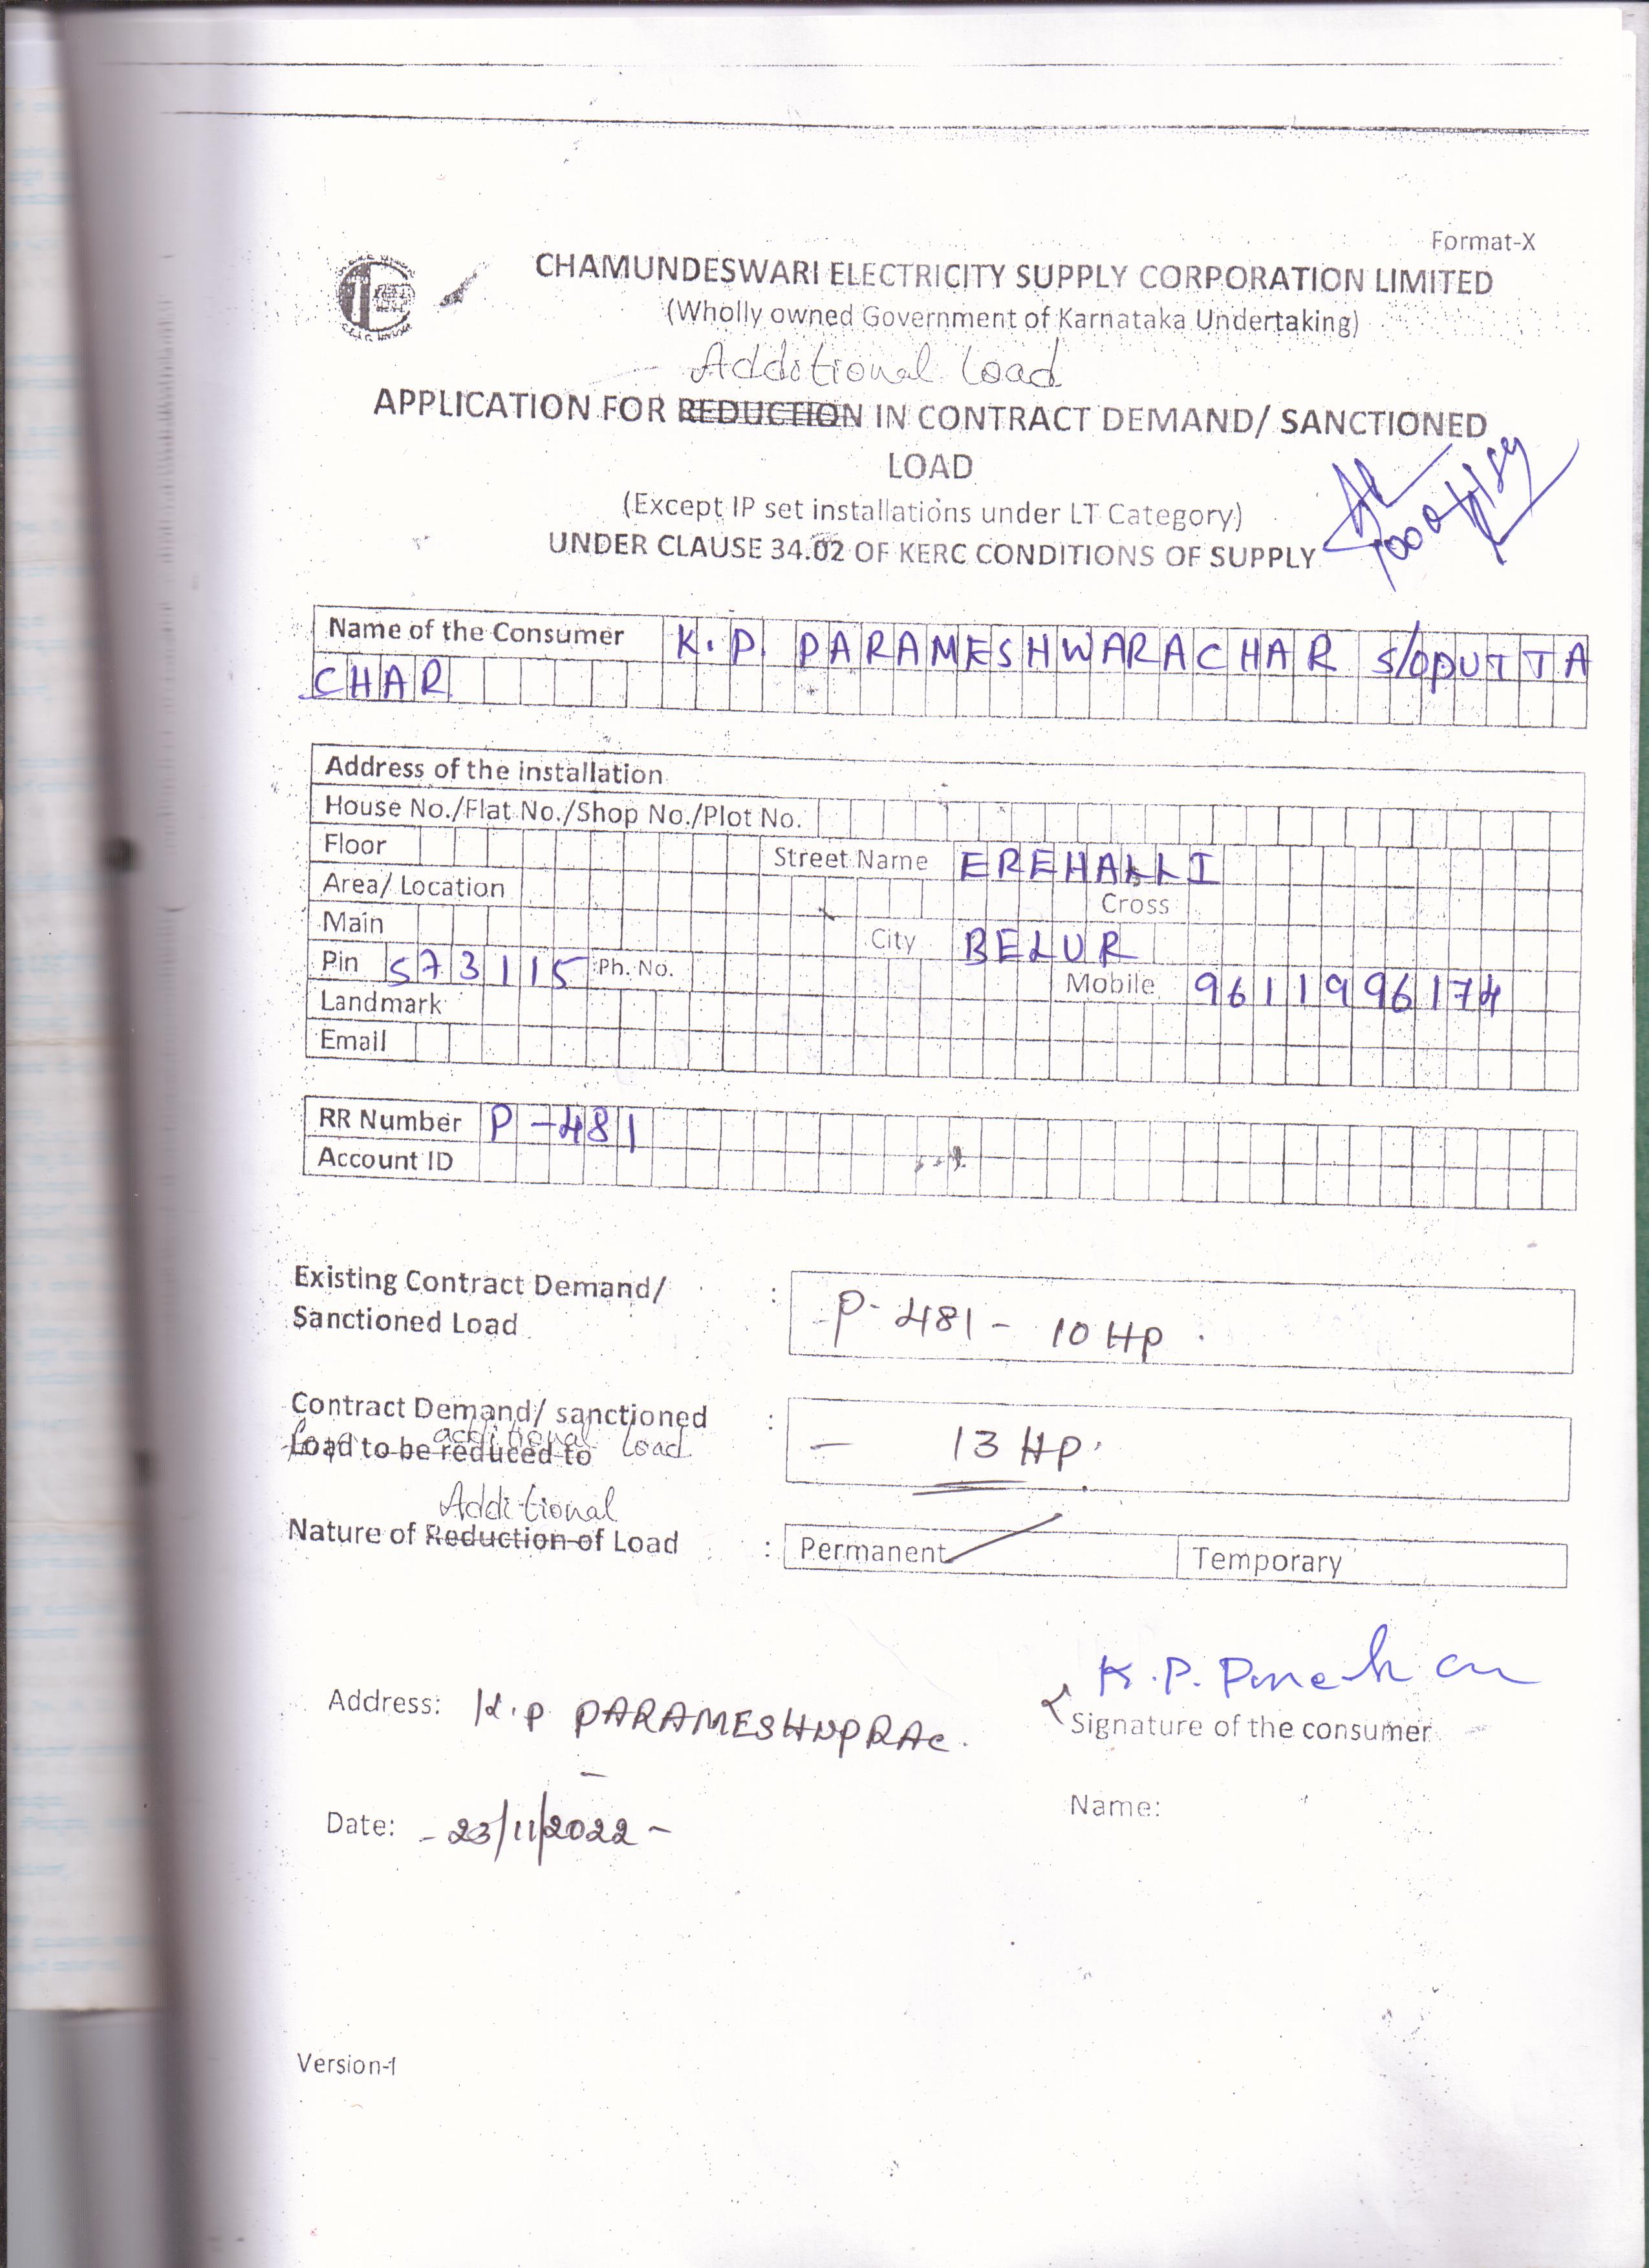 Format-X
CHAMUNDESWARI ELECTRICITY SUPPLY CORPORATION LIMITED
(Wholly owned Government of Karnataka Undertaking)
Additional Load
APPLICATION FOR REDUCTION IN CONTRACT DEMAND/ SANCTIONED
LOAD
(Except IP set installations under LT Category)
UNDER CLAUSE 34.02 OF KERC CONDITIONS OF SUPPLY
Name of the Consumer K.P. PARAMESHWARACHAR S/O PUTTA
CHAR
Address of the installation
House No./Flat No./Shop No./Plot No.
Floor Street Name EREHALLI
Area/ Location Cross
Main City BELUR
Pin 573115 Ph. No. Mobile 9611996174
Landmark
Email
RR Number P-481
Account ID
Existing Contract Demand/ : P-481 - 10 HP.
Sanctioned Load
Contract Demand/ sanctioned : - 13 HP.
additional load
Load to be reduced to
Additional
Nature of Reduction of Load : Permanent Temporary
K.P.
Address: K.P PARAMESHWARAC.
Signature of the consumer
Name:
Date: - 23/11/2022 -
Version-1